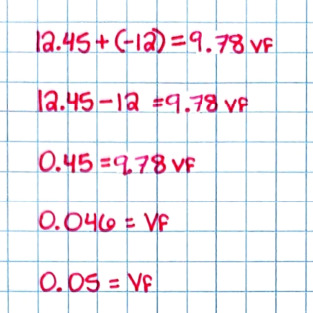 12.45+(-12)=9.78 VF
12.45-12 =9.78 VF
0.45=9.78 VF
0.046 = VF
0.05 = VF